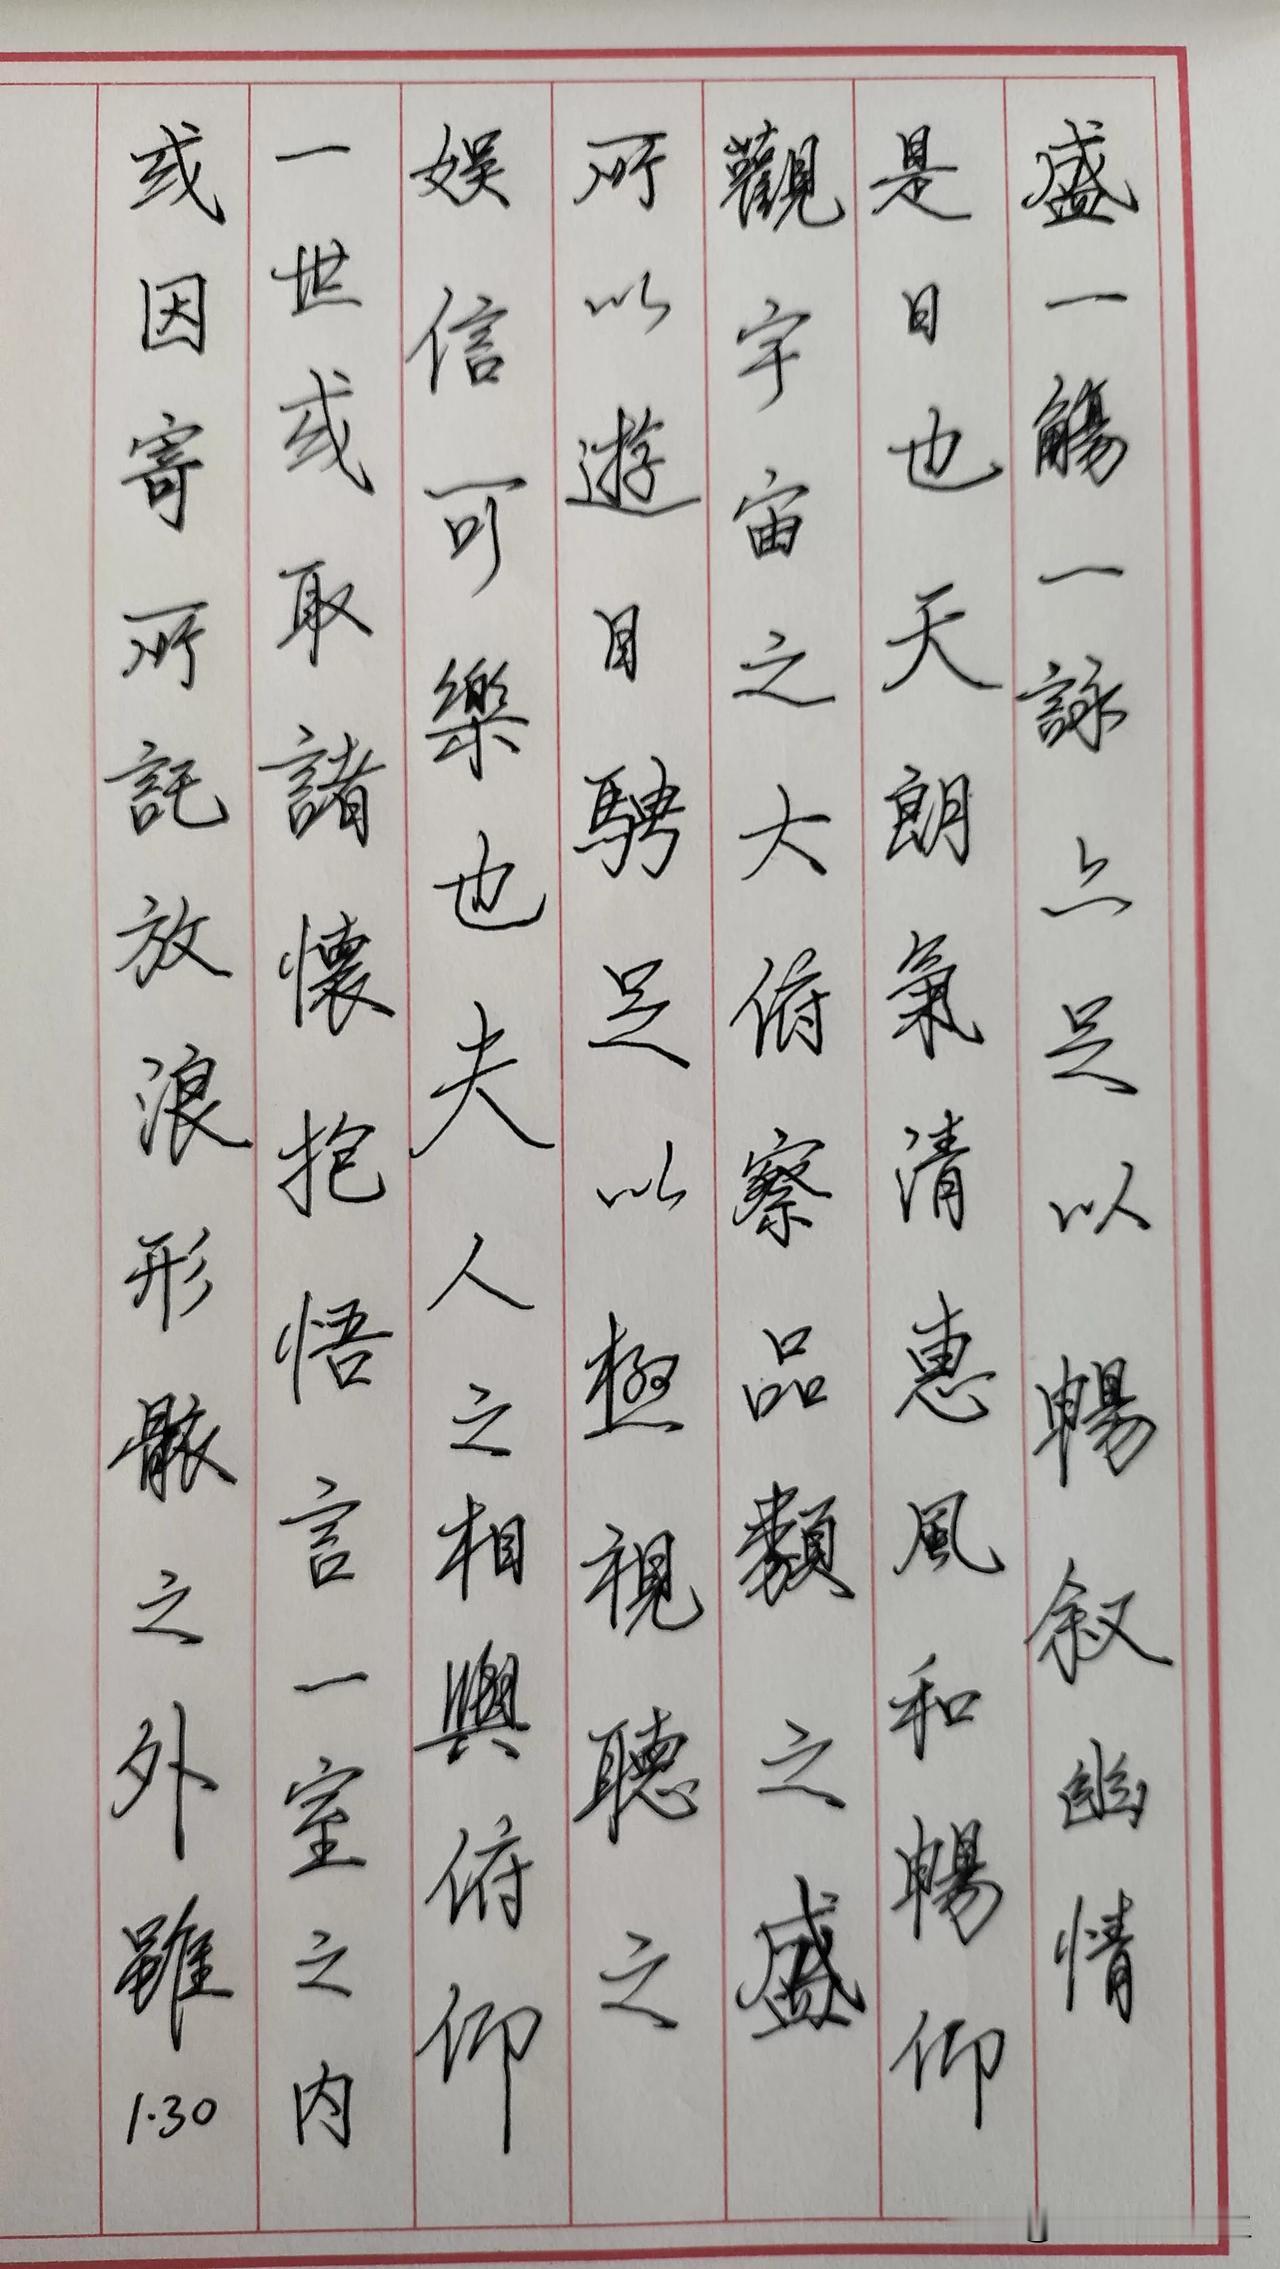 盛一觴一詠亦足以暢叙幽情
是日也天朗氣清惠風和暢仰
觀宇宙之大俯察品類之盛
所以遊目騁足以極視聽之
娛信可樂也夫人之相與俯仰
一世或取諸懷抱悟言一室之內
或因寄所託放浪形骸之外雖
1.30